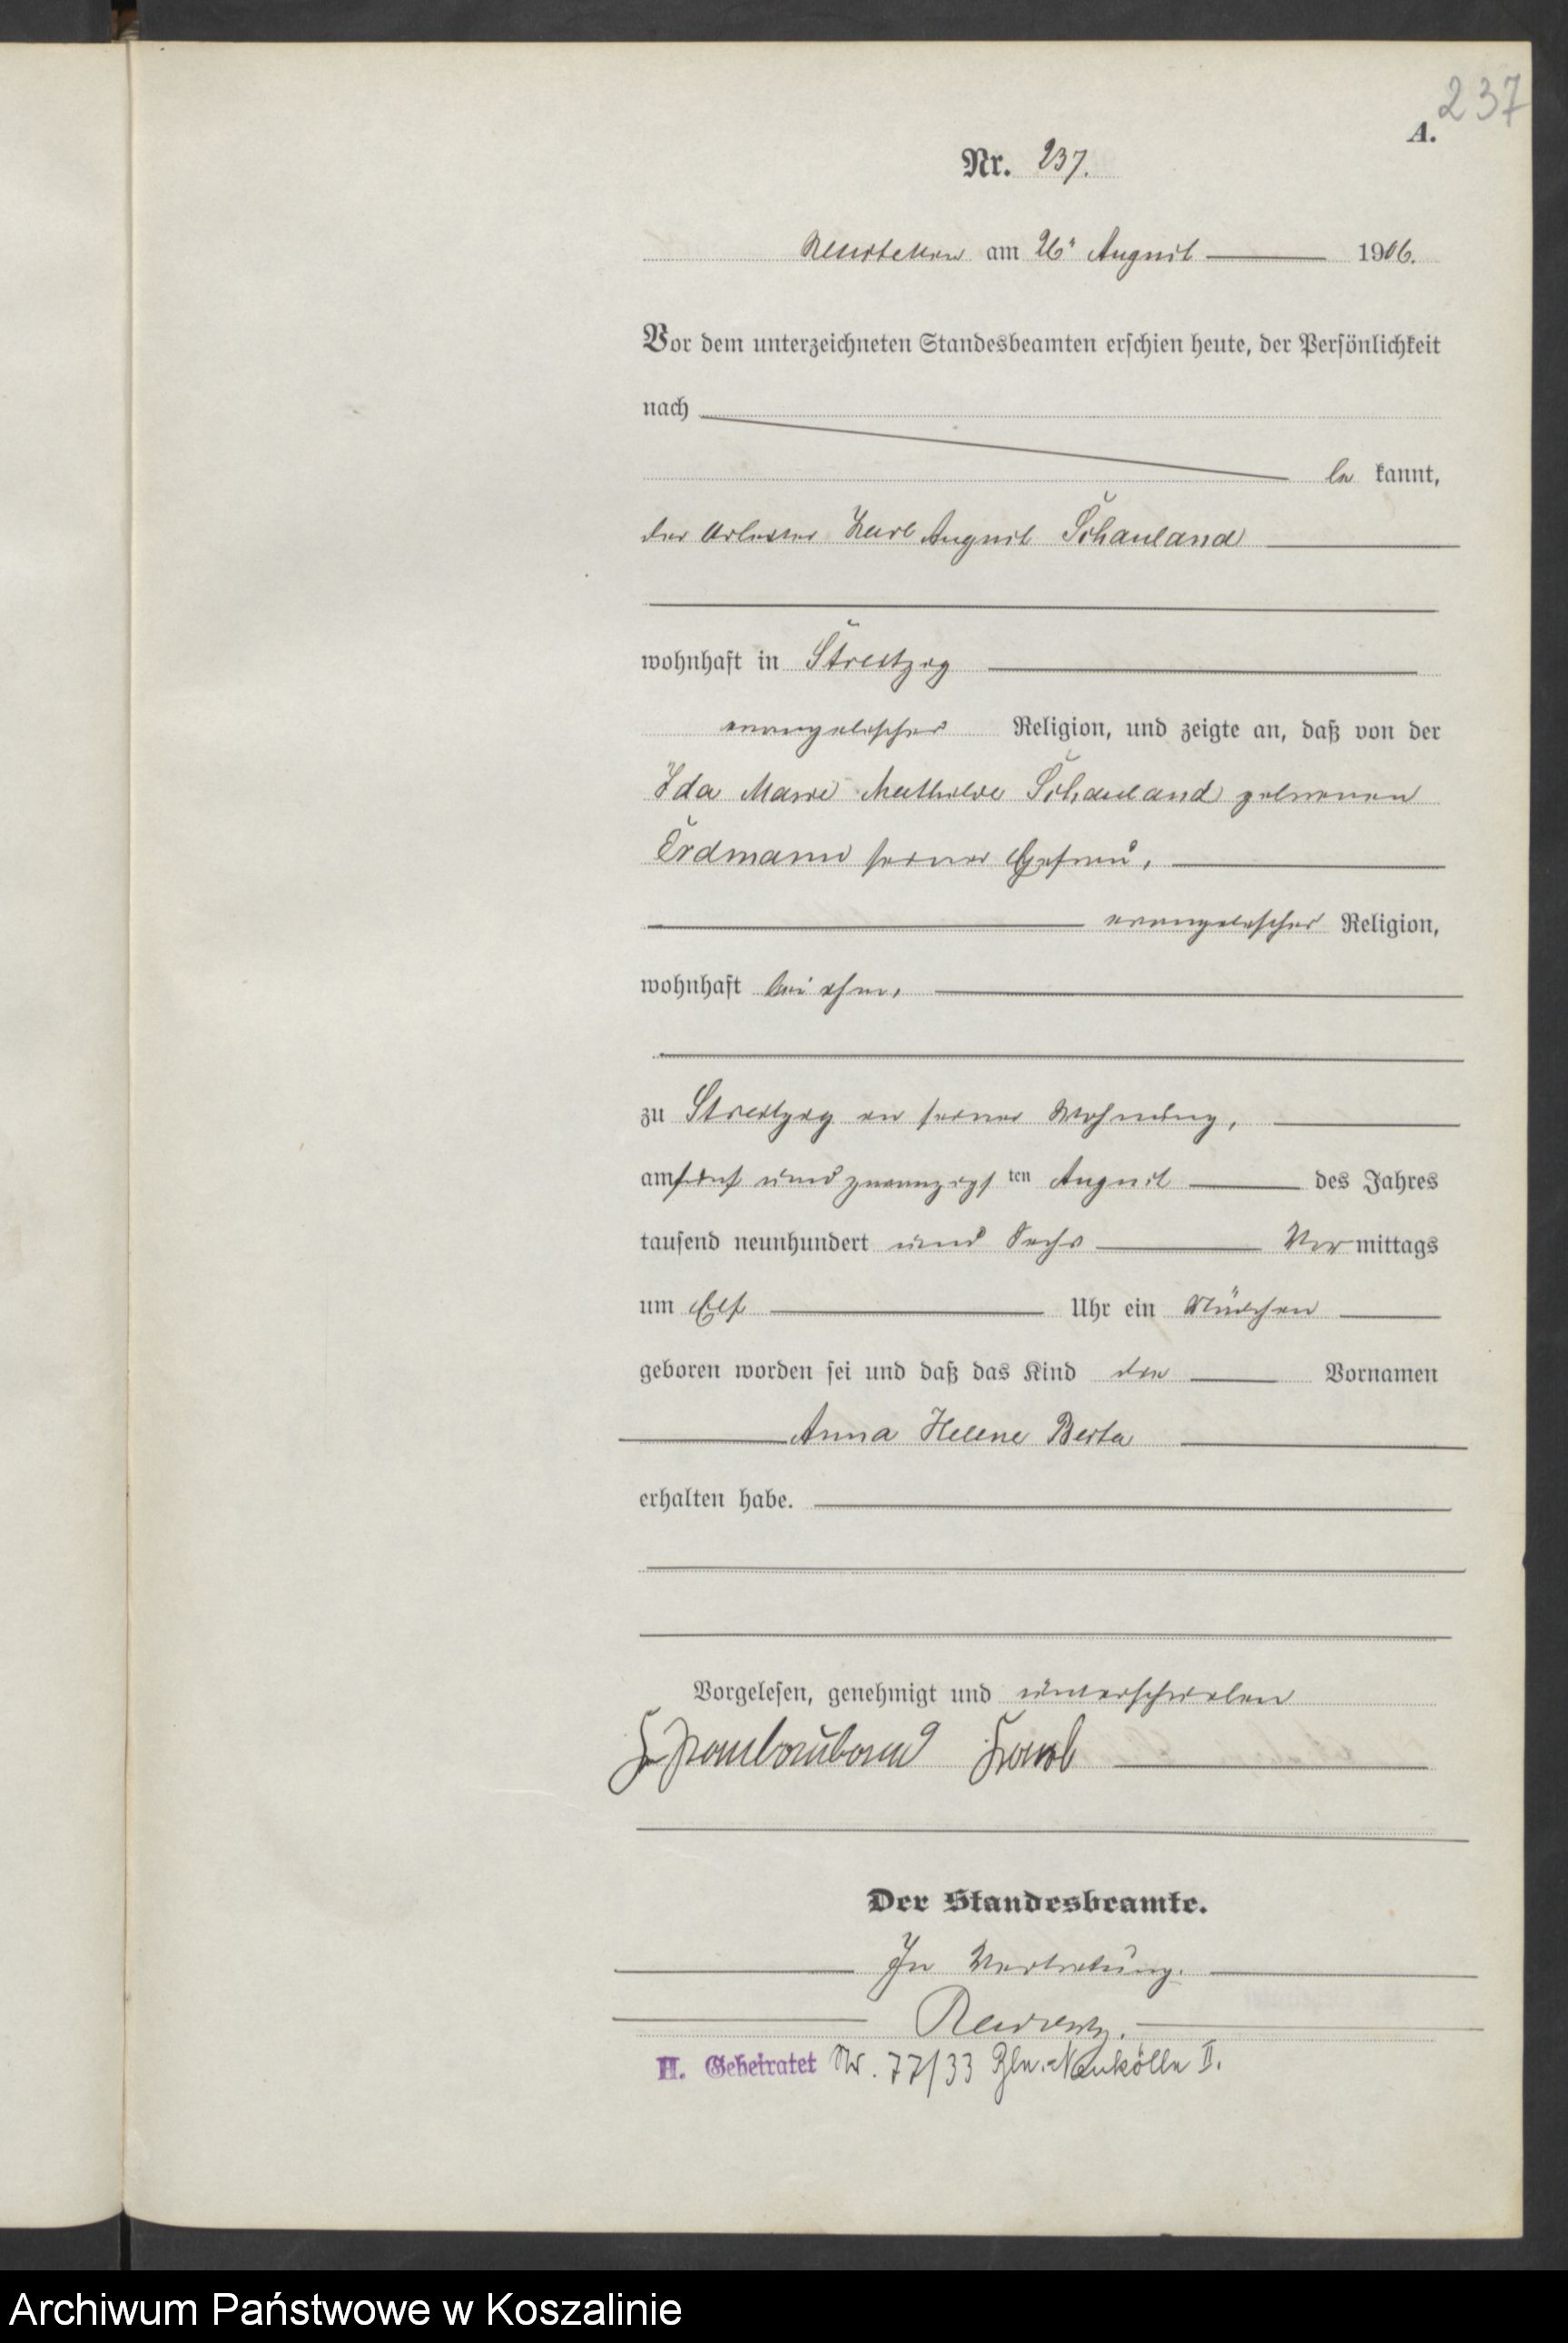 237
A.
Nr. 237.
Neustettin am 26ⁿ August 1906.
Vor dem unterzeichneten Standesbeamten erschien heute, der Persönlichkeit
nach
be kannt,
der Arbeiter Karl August Schauland
wohnhaft in Streitzig
evangelischer Religion, und zeigte an, daß von der
Ida Marie Mathilde Schauland geborenen
Erdmann seiner Ehefrau,
evangelischer Religion,
wohnhaft bei ihm,
zu Streitzig in seiner Wohnung,
am fünf und zwanzigs ten August des Jahres
tausend neunhundert und Sechs Vor mittags
um Elf Uhr ein Mädchen
geboren worden sei und daß das Kind die Vornamen
Anna Helene Berta
erhalten habe.
Vorgelesen, genehmigt und unterschrieben
Der Standesbeamte.
In Vertretung.
II. Geheiratet Nr. 77/33 Bln.-Neukölln II.
Archiwum Państwowe w Koszalinie